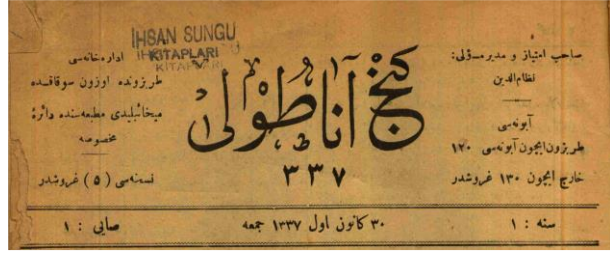 İHSAN SUNGU
KİTAPLARI
صاحب امتیاز و مدیر مسؤلی:
نظام‌الدین
آبونه‌سی
طربزون ایچون آبونه‌سی ۱۲۰
خارج ایچون ۱۳۰ غروشدر
كنج آناطولی
۳۳۷
اداره‌خانه‌سی
طربزونده اوزون سوقاقده
میخائیلیدی مطبعه‌سنده دائرۀ
مخصوصه
نسخه‌سی ( ۵ ) غروشدر
سنه : ۱
۳۰ كانون اول ۱۳۳۷ جمعه
صایی : ۱